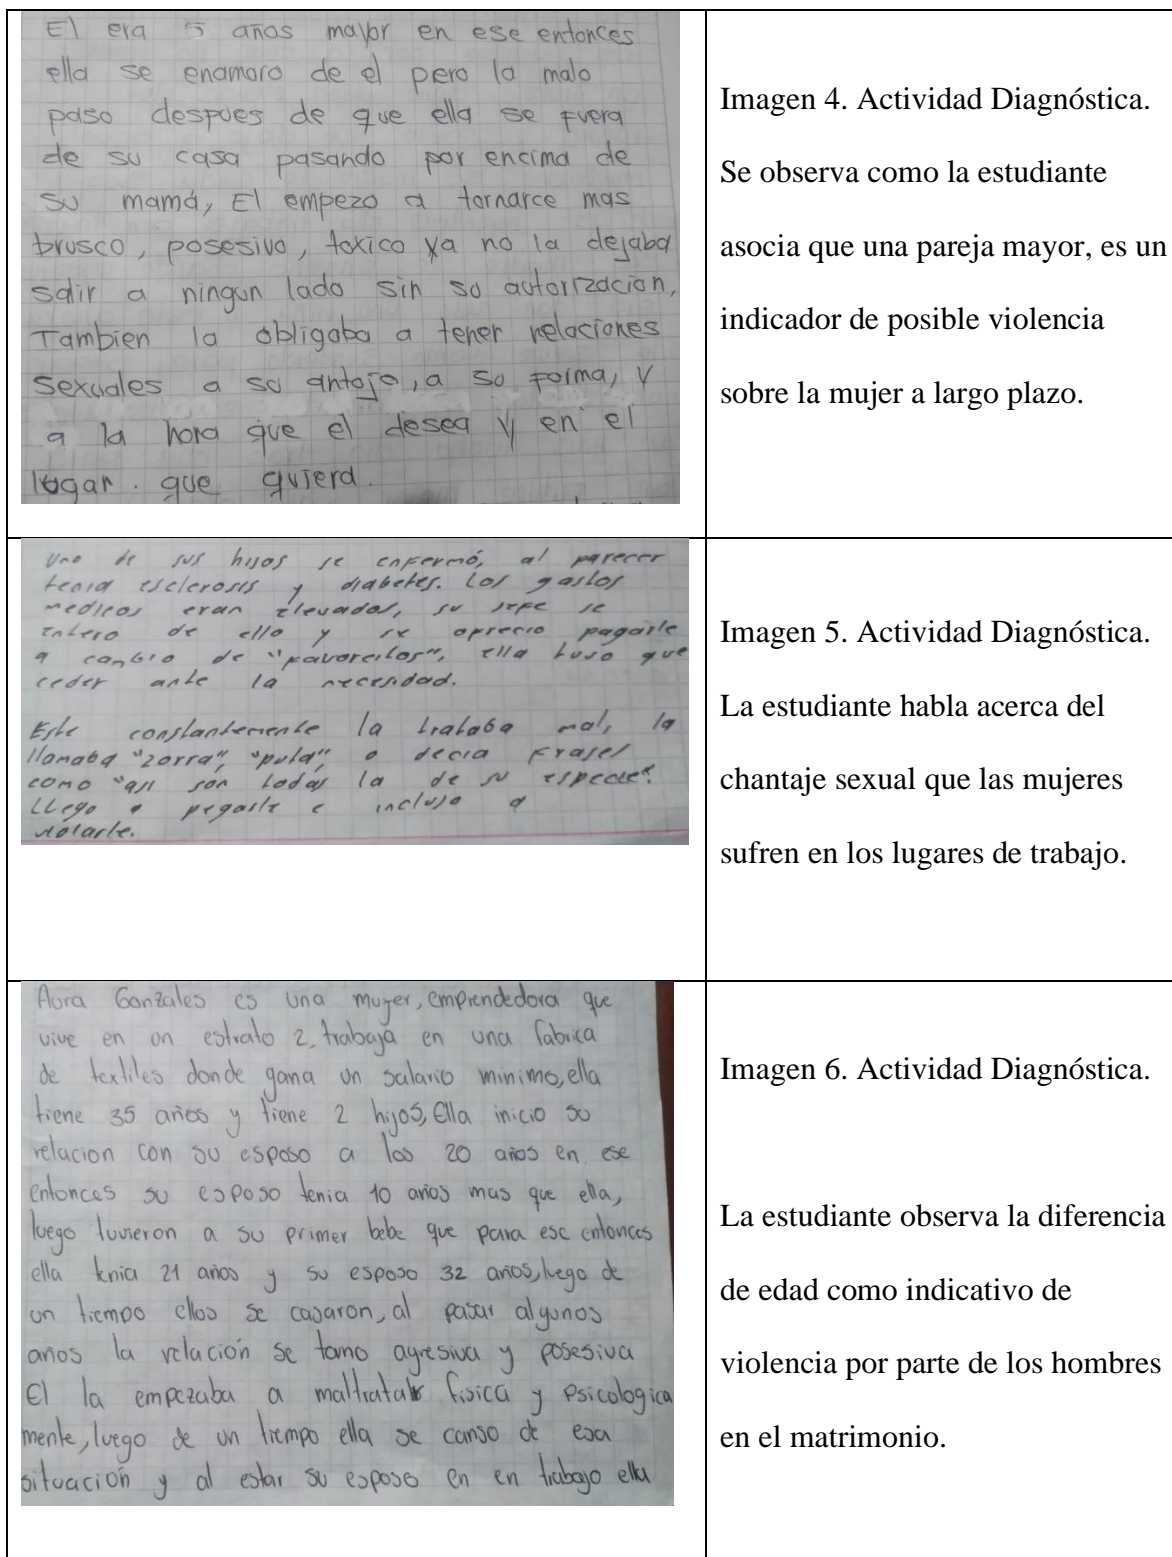 El era 5 años mayor en ese entonces
ella se enamoro de el pero lo malo
paso despues de que ella se fuera
de su casa pasando por encima de
su mamá, El empezo a tornarce mas
brusco, posesivo, toxico ya no la dejaba
salir a ningun lado sin su autorizacion,
Tambien la obligaba a tener relaciones
sexuales a su antojo, a su forma, y
a la hora que el desea y en el
lugar. que quiera.
Imagen 4. Actividad Diagnóstica.
Se observa como la estudiante
asocia que una pareja mayor, es un
indicador de posible violencia
sobre la mujer a largo plazo.
Uno de sus hijos se enfermó, al parecer
tenia esclerosis y diabetes. Los gastos
medicos eran elevados, su jefe se
entero de ello y se oprecio pagarle
a cambio de "favorcitos", ella tuvo que
ceder ante la necesidad.
Este constantemente la trataba mal, la
llamaba "zorra", "puta", o decia frases
como "asi son todas la de su especie".
Llego a pegarle e incluso a
violarle.
Imagen 5. Actividad Diagnóstica.
La estudiante habla acerca del
chantaje sexual que las mujeres
sufren en los lugares de trabajo.
Aura Gonzales es una mujer, emprendedora que
vive en un estrato 2, trabaja en una fabrica
de textiles donde gana un salario minimo, ella
tiene 35 años y tiene 2 hijos, Ella inicio su
relacion con su esposo a los 20 años en ese
entonces su esposo tenia 10 años mas que ella,
luego tuvieron a su primer bebe que para ese entonces
ella tenia 21 años y su esposo 32 años, luego de
un tiempo ellos se casaron, al pasar algunos
años la relación se torno agresiva y posesiva
El la empezaba a maltratar fisica y Psicologica
mente, luego de un tiempo ella se canso de esa
situación y al estar su esposo en en trabajo ella
Imagen 6. Actividad Diagnóstica.
La estudiante observa la diferencia
de edad como indicativo de
violencia por parte de los hombres
en el matrimonio.